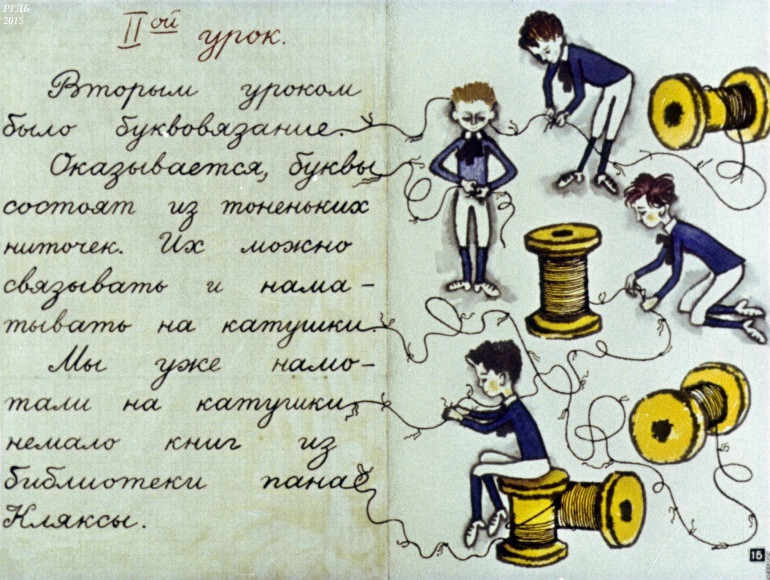 РГДБ
2015
IIой урок.
Вторым уроком
было буквовязание.
Оказывается, буквы
состоят из тоненьких
ниточек. Их можно
связывать и нама-
тывать на катушки.
Мы уже намо-
тали на катушки
немало книг из
библиотеки пана
Кляксы.
15